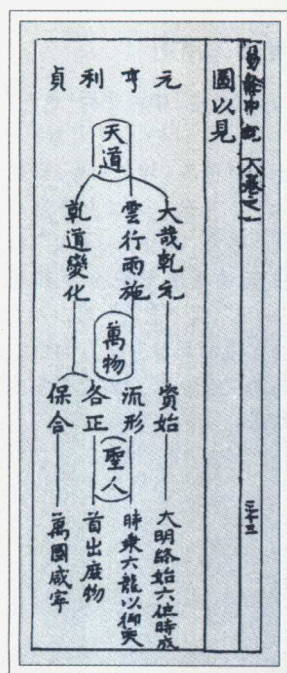 卷之一
三十三
圖以見
元
亨
利
貞
天道
大哉乾元
雲行雨施
乾道變化
萬物
資始
流形
各正
保合
聖人
大明終始六位時成
時乘六龍以御天
首出庶物
萬國咸寧